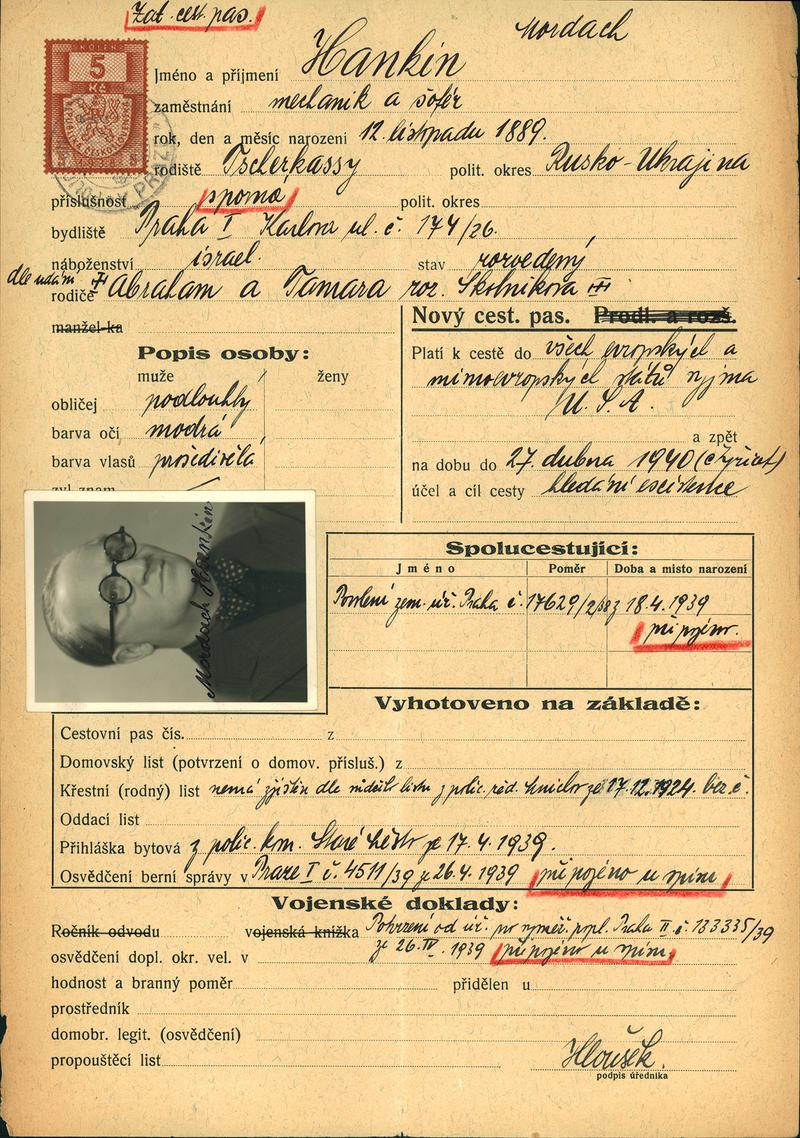 Zat. cest. pas.
Mordach
KOLEK
5
Kč
Jméno a příjmení Hankin
zaměstnání mechanik a šofér
rok, den a měsíc narození 12. listopadu 1889.
rodiště Tscherkassy polit. okres Rusko-Ukrajina
příslušnost sporná polit. okres
bydliště Praha I Karlova ul. č. 174/26.
náboženství israel. stav rozvedený
dle udání
rodiče Abraham a Tamara roz. Skolnikova
manžel-ka
Nový cest. pas. Prodl. a rozš.
Popis osoby:
muže ženy
obličej podlouhlý
barva očí modrá
barva vlasů prošedivělá
zvl. znam.
Platí k cestě do všech evropských a
mimoevropských států vyjma
U. S. A.
a zpět
na dobu do 27. dubna 1940 (čtyřicet)
účel a cíl cesty hledání existence
Mordach Hankin
Spolucestující:
Jméno Poměr Doba a misto narození
Povolení zem. úř. Praha č. 17629/2/38 z 18.4.1939
připojeno.
Vyhotoveno na základě:
Cestovní pas čís. z
Domovský list (potvrzení o domov. přísluš.) z
Křestní (rodný) list nemá zjištěn dle z polic. řed. ze 17.12.1924. bez č.
Oddací list
Přihláška bytová z polic. kom. Staré Město ze 17.4.1939.
Osvědčení berní správy v Praze I č. 4511/39 z 26.4.1939 připojeno u spisu
Vojenské doklady:
Ročník odvodu vojenská knížka Potvrzení od úř. pro vyměř. popl. Praha II č. 133335/39
osvědčení dopl. okr. vel. v ze 26.IV.1939 připojeno u spisu
hodnost a branný poměr přidělen u
prostředník
domobr. legit. (osvědčení)
propouštěcí list
Hloušek.
podpis úředníka